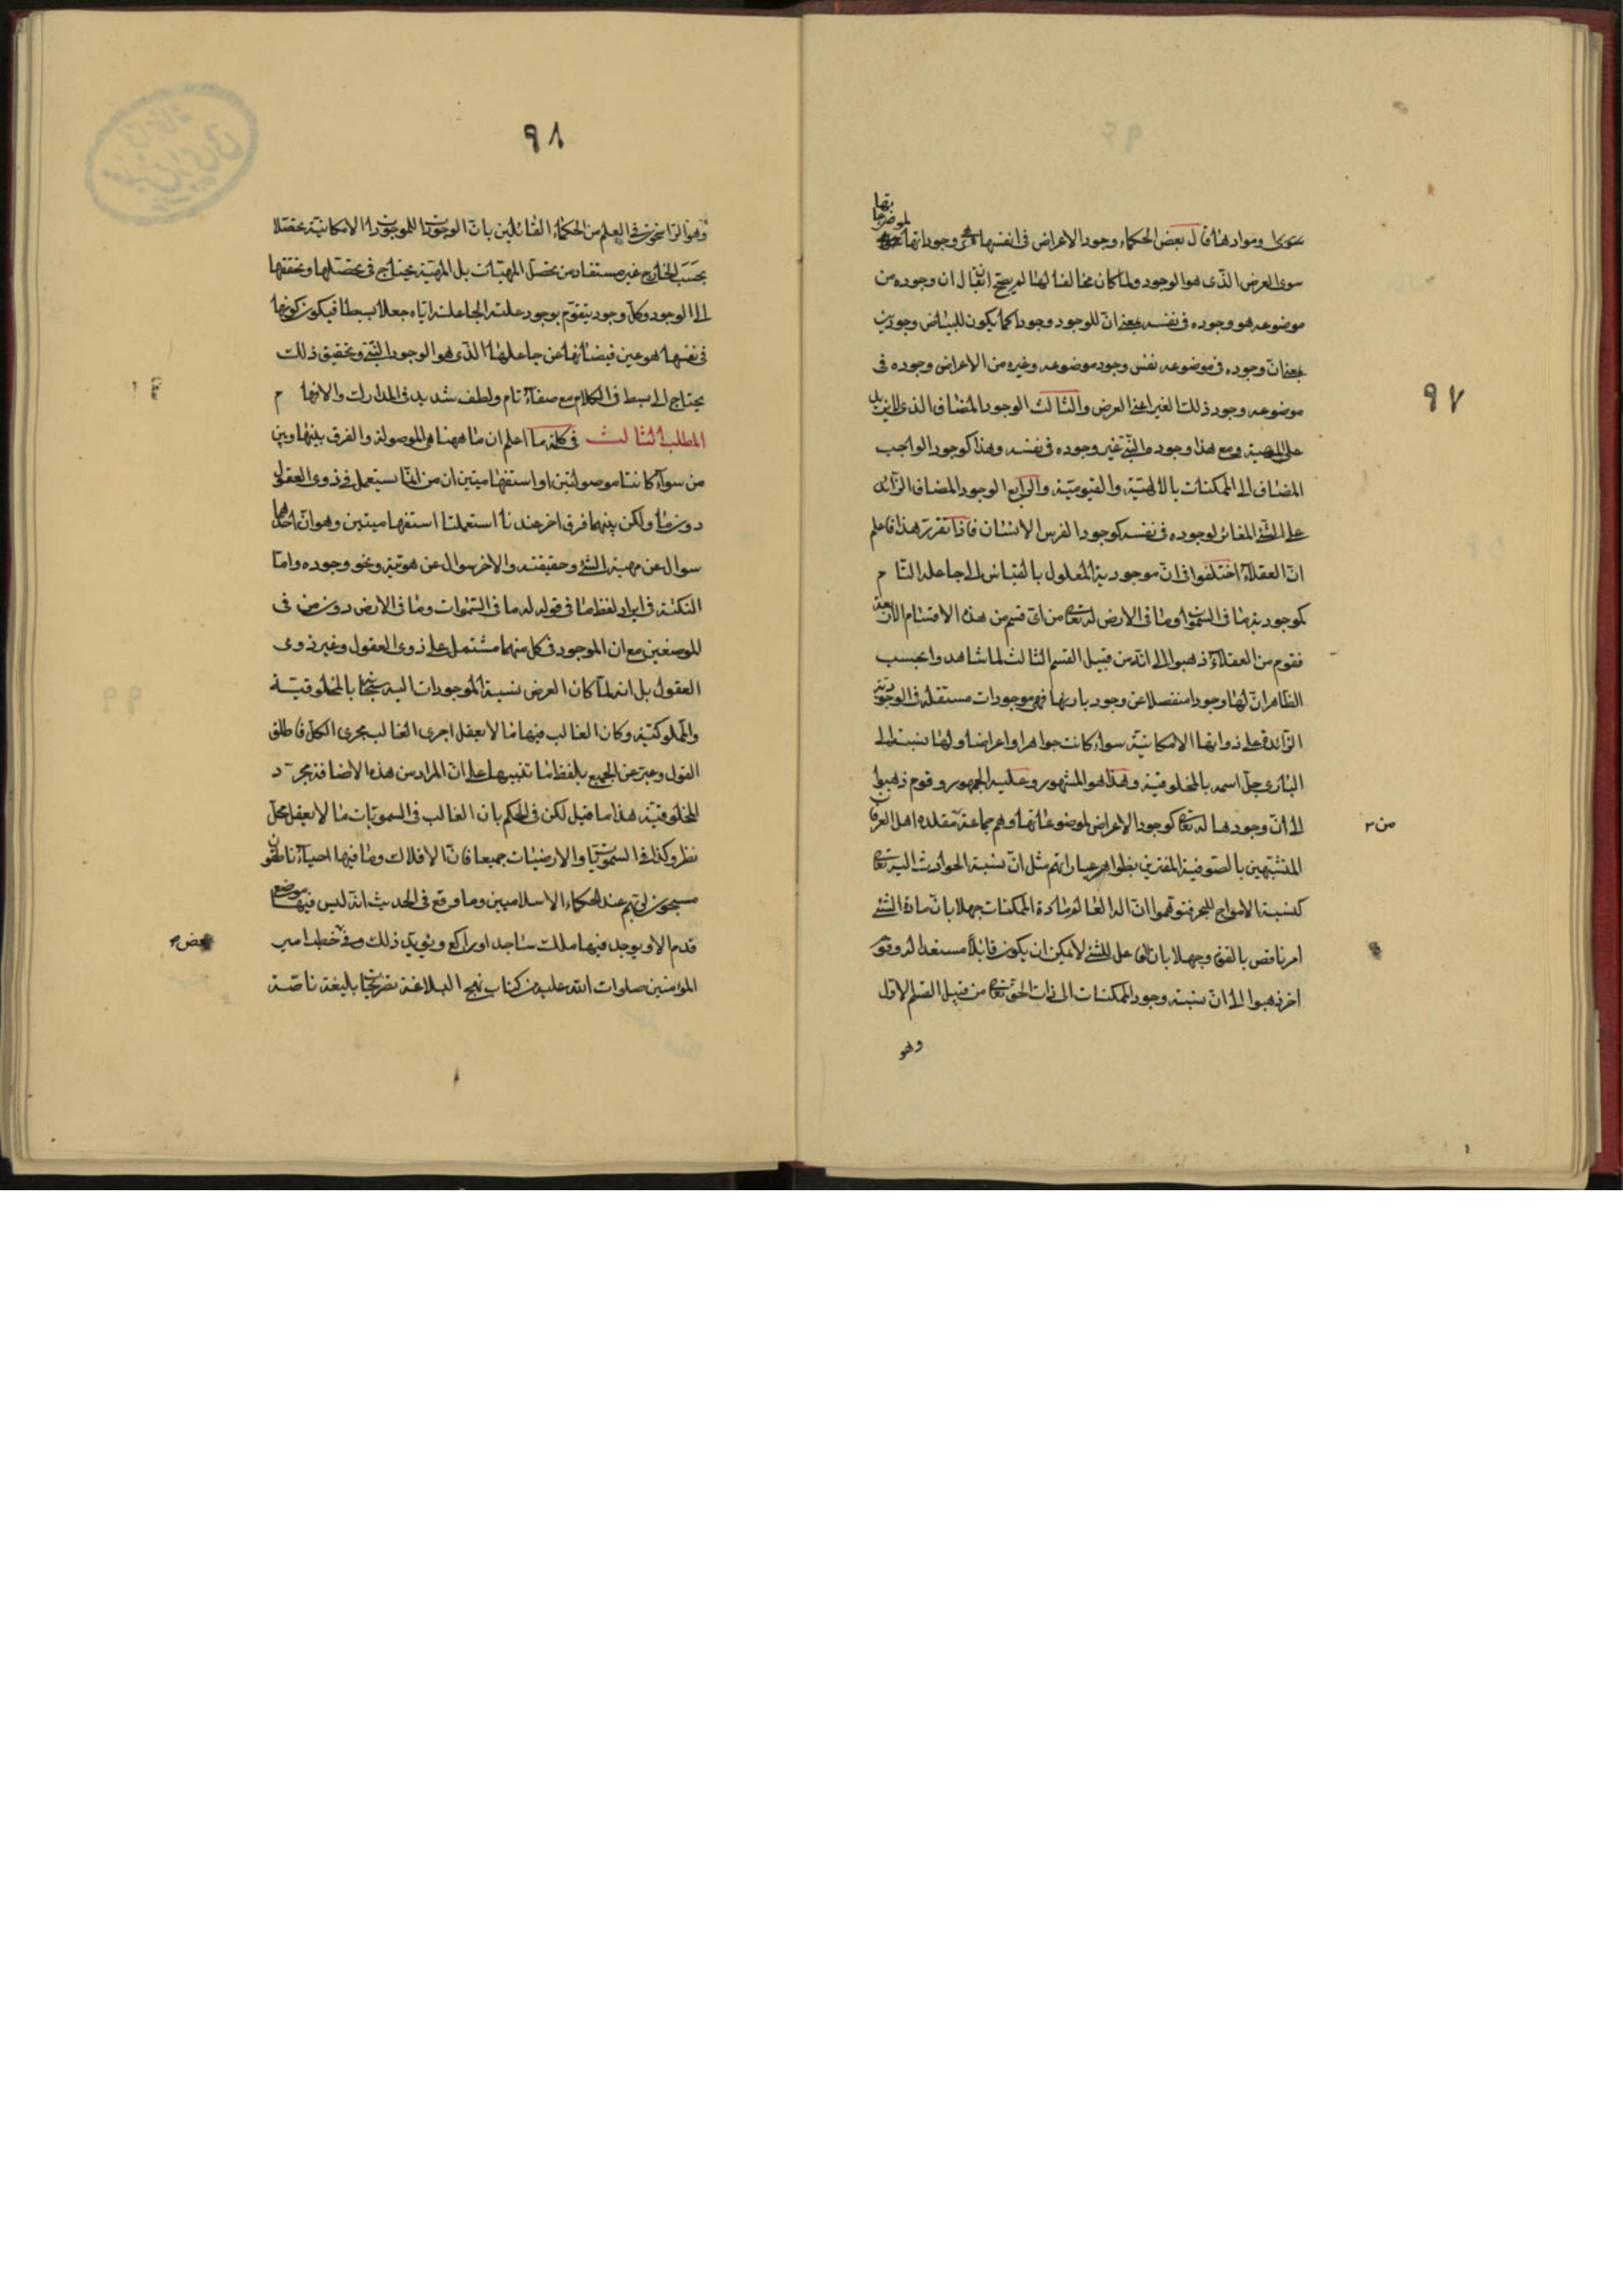 ٩٧
صورها وموادها قال بعض الحكماء وجود الاعراض فى انفسها هى وجوداتها لموضوعاتها
سوى العرض الذى هو الوجود ولما كان مخالفا لها لم يصح ان يقال ان وجوده من
موضوعه هو وجوده فى نفسه بمعنى ان للوجود وجودا كما يكون للبياض وجود بل
بمعنى ان وجوده فى موضوعه نفس وجود موضوعه وغيره من الاعراض وجوده فى
موضوعه وجود ذلك الغير اعنى العرض والثالث الوجود المضاف الذى لا يزيد
على المهية ومع هذا وجوده النسبى غير وجوده فى نفسه وهذا كوجود الواجب
المضاف الى الممكنات بالالهية والقيومية والرابع الوجود المضاف الزائد
على الشئ المغائر لوجوده فى نفسه كوجود الفرس للانسان فاذا تقرر هذا فاعلم
ان العقلاء اختلفوا فى ان موجودية المعلول بالقياس الى جاعله التام
كموجودية ما فى السموات وما فى الارض له تعالى من اى قسم من هذه الاقسام الاربعة
فقوم من العقلاء ذهبوا الى انه من قبيل القسم الثالث لما شاهدوا بحسب
الظاهر ان لها وجودا منفصلا عن وجود باريها فهى موجودات مستقلة فى الوجودية
الزائدة على ذواتها الامكانية سواء كانت جواهر او اعراضا ولها نسبة الى
البارى جل اسمه بالمخلوقية وهذا هو المشهور وعليه الجمهور وقوم ذهبوا
الى ان وجودها له تعالى كوجود الاعراض لموضوعاتها وهم جماعة من مقلدة اهل العرفان
المتشبهين بالصوفية المغترين بظواهر عباراتهم مثل ان نسبة الحوادث اليه تعالى
كنسبة الامواج للبحر فتوهموا ان اله العالم مادة الممكنات جهلا بان مادة الشئ
امر ناقص بالقوة وجهلا بان الفاعل للشئ لا يمكن ان يكون قابلا مستعدا له وقوم
اخر ذهبوا الى ان نسبة وجود الممكنات الى ذات الحق تعالى من قبيل القسم الاول
وهو
٩٨
وهو الراسخون فى العلم من الحكماء القائلين بان الوجودات للموجودات الامكانية تحصلا
بحسب الخارج غير مستفاد من تحصل المهيات بل المهية يحتاج فى تحصلها وتحققها
الى الوجود وكل وجود يتقوم بوجود علته الجاعلة اياه جعلا بسيطا فيكون كونها
فى نفسها هو عين فيضانها عن جاعلها الذى هو الوجود النسبى وتحقيق ذلك
يحتاج الى بسط فى الكلام مع صفاء تام ولطف شديد فى المدارك والافهام
المطلب الثالث فى كلمة ما اعلم ان ما ههنا هى الموصولة والفرق بينها وبين
من سواء كانتا موصولتين او استفهاميتين ان من انما يستعمل فى ذوى العقول
دون ما ولكن بينهما فرق اخر عندنا استعملتا استفهاميتين وهو ان احدهما
سوال عن مهية الشئ وحقيقته والاخر سوال عن هويته ونحو وجوده واما
النكتة فى ايراد لفظ ما فى قوله له ما فى السموات وما فى الارض دون من فى
الموضعين مع ان الموجود فى كل منهما مشتمل على ذوى العقول وغير ذوى
العقول بل انه لما كان الغرض نسبة الموجودات اليه سبحانه بالمخلوقية
والمملوكية وكان الغالب فيها ما لا يعقل اجرى الغالب مجرى الكل فاطلق
القول وعبر عن الجميع بلفظ ما تنبيها على ان المراد من هذه الاضافة مجرد
المخلوقية هذا ما قيل لكن فى الحكم بان الغالب فى السمويات ما لا يعقل محل
نظر وكذا فى السمويات والارضيات جميعا فان الافلاك وما فيها احياء ناطقون
مسبحون لربهم عند بعض الحكماء الاسلاميين وما وقع فى الحديث انه ليس فيها موضع
قدم الا ويوجد فيها ملك ساجد او راكع ويؤيد ذلك وفى خطب امير
المؤمنين صلوات الله عليه من كتاب نهج البلاغة تصريحات بليغة ناصة